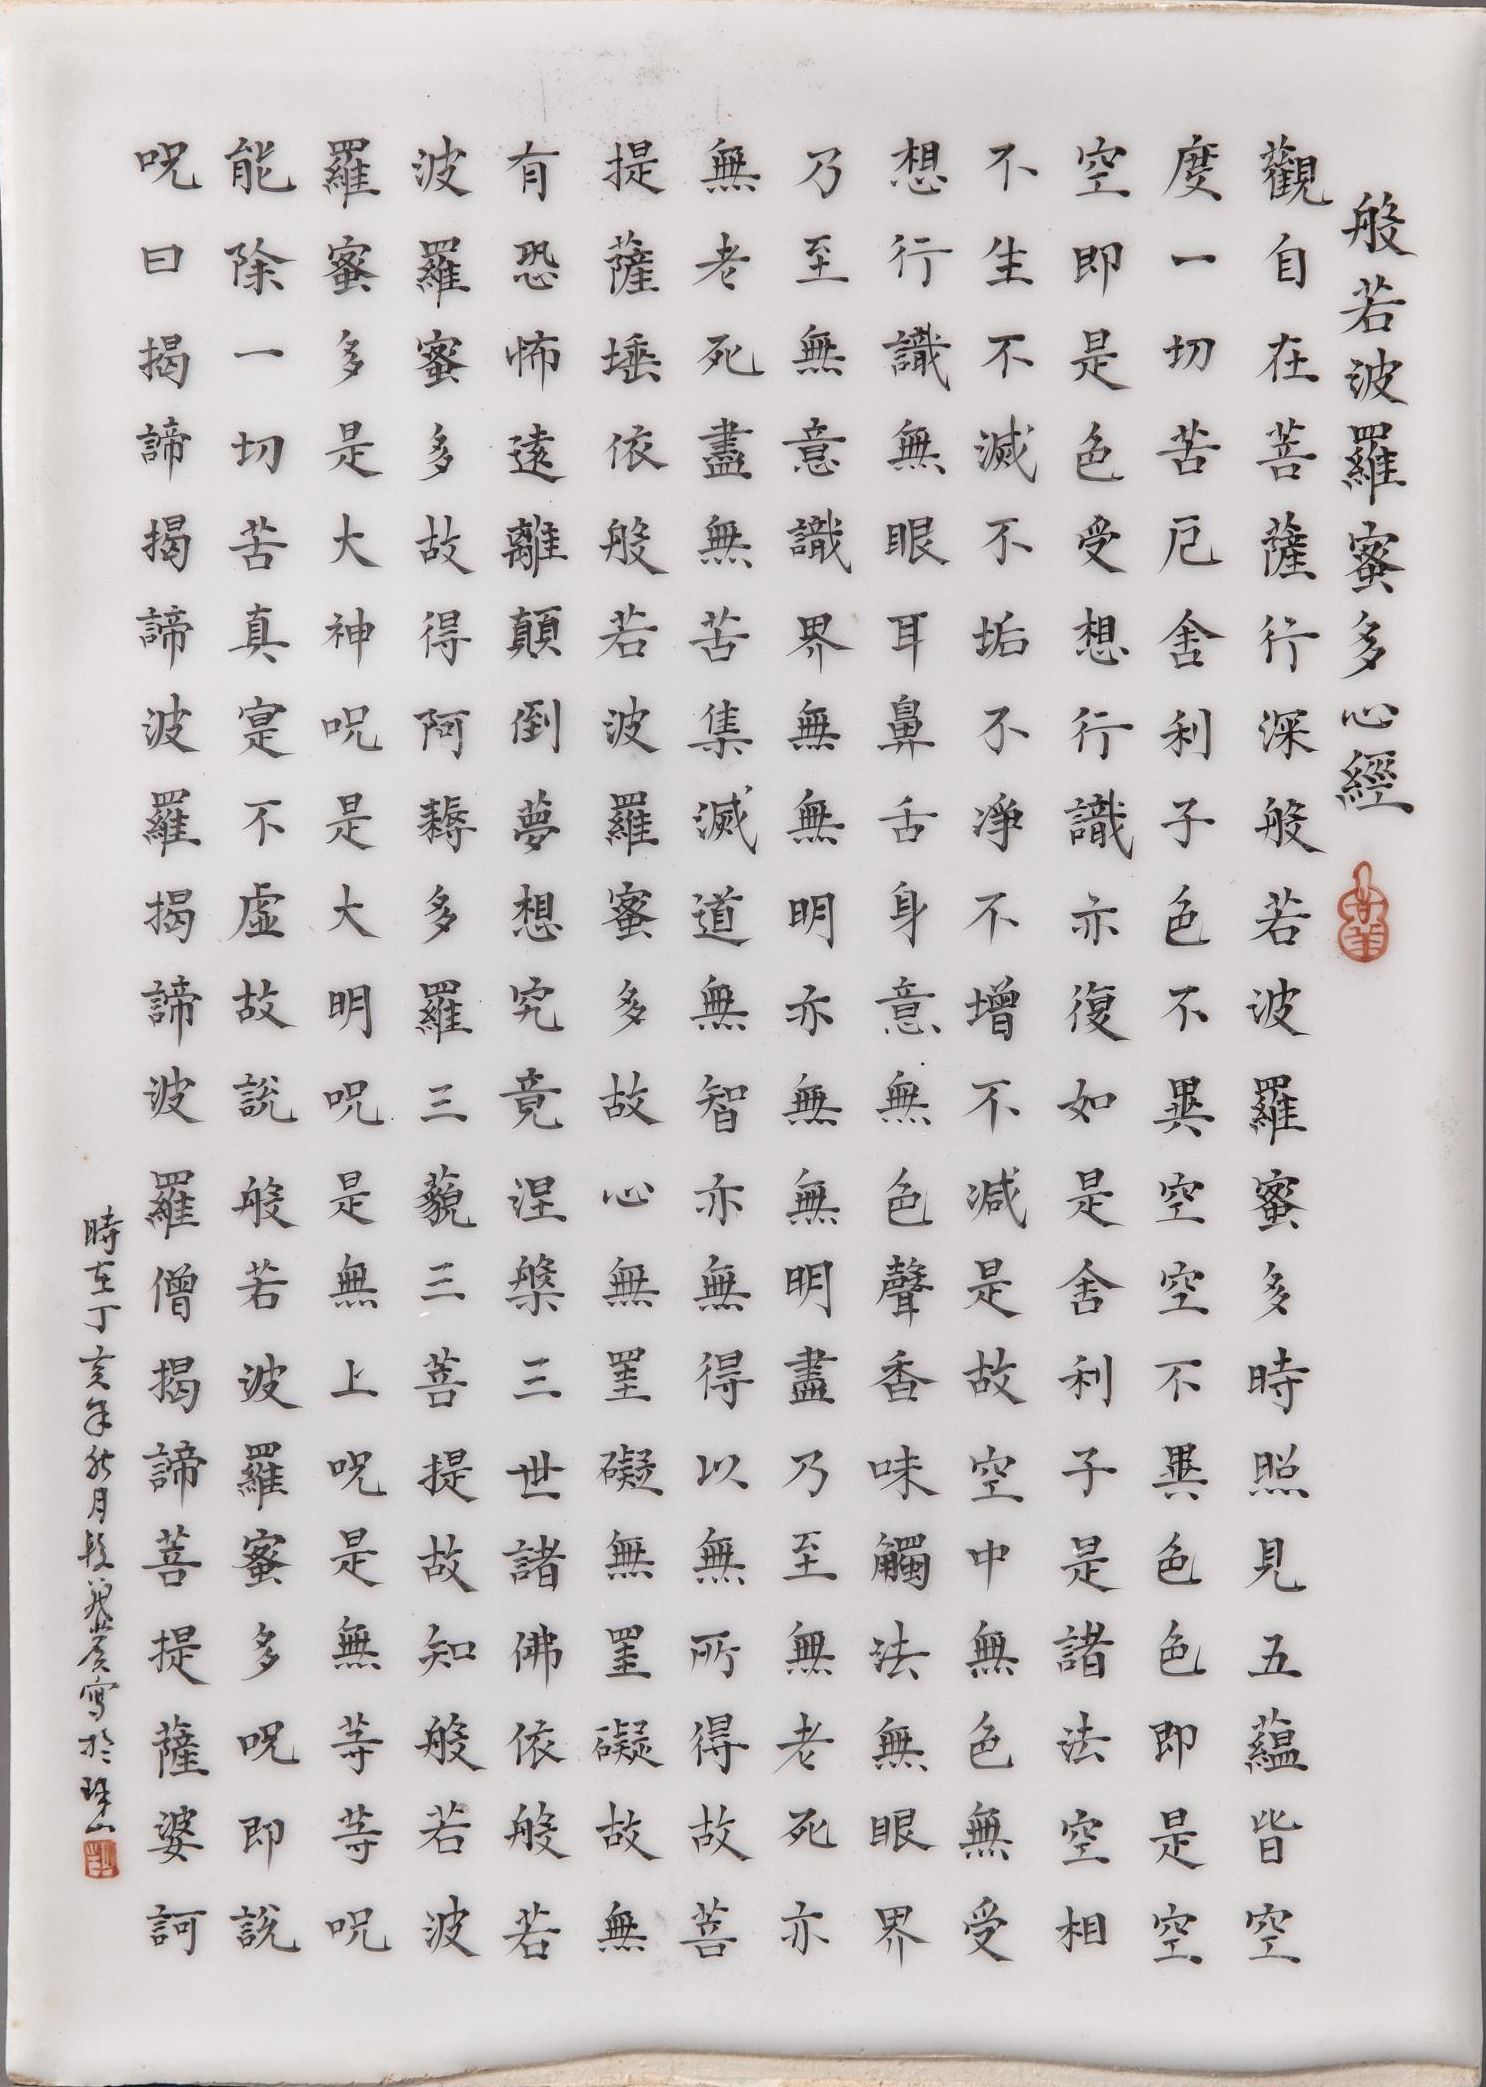 般若波羅蜜多心經
觀自在菩薩行深般若波羅蜜多時照見五蘊皆空
度一切苦厄舍利子色不異空空不異色色即是空
空即是色受想行識亦復如是舍利子是諸法空相
不生不滅不垢不淨不增不減是故空中無色無受
想行識無眼耳鼻舌身意無色聲香味觸法無眼界
乃至無意識界無無明亦無無明盡乃至無老死亦
無老死盡無苦集滅道無智亦無得以無所得故菩
提薩埵依般若波羅蜜多故心無罣礙無罣礙故無
有恐怖遠離顛倒夢想究竟涅槃三世諸佛依般若
波羅蜜多故得阿耨多羅三藐三菩提故知般若波
羅蜜多是大神呪是大明呪是無上呪是無等等呪
能除一切苦真寔不虛故說般若波羅蜜多呪即說
呪曰揭諦揭諦波羅揭諦波羅僧揭諦菩提薩婆訶
時在丁亥年秋月段寫於珠山